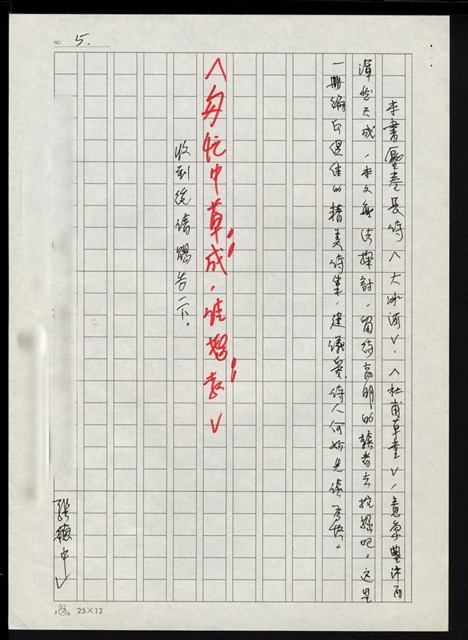 NO. 5.
本書壓卷長詩〈大冰河〉、〈杜甫草堂〉，意象豐沛而
渾然天成，本文無法探討，留待高明的讀者去挖掘吧。這是
一冊編印俱佳的精美詩集，建議愛詩人何妨先讀為快。
〈匆忙中草成，請賜教〉
收到後請賜告一下。
張
中
25×12